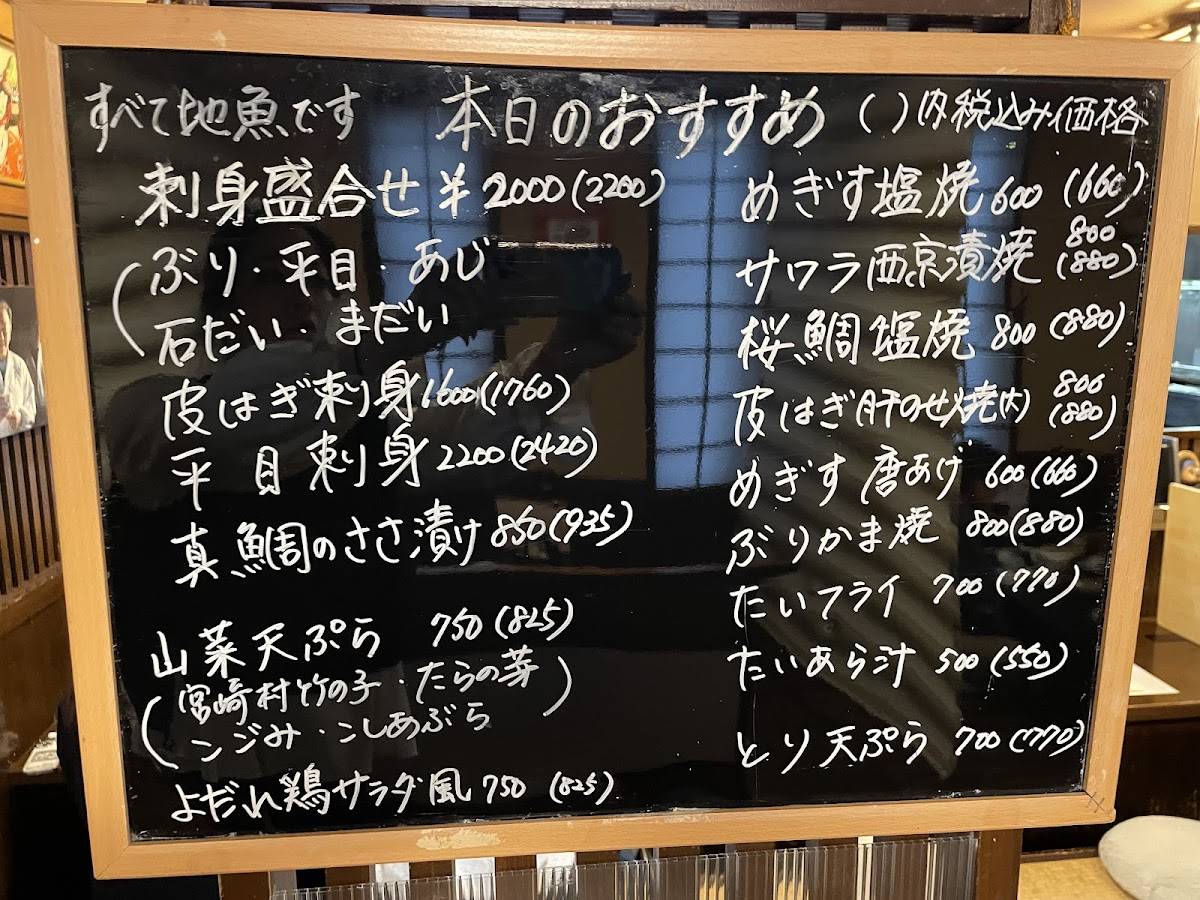 すべて地魚です 本日のおすすめ ( )内税込み価格
刺身盛合せ ¥2000(2200)
(ぶり・平目・あじ
石だい・まだい
皮はぎ刺身 1600(1760)
平目刺身 2200(2420)
真鯛のささ漬け 850(935)
山菜天ぷら 750(825)
(宮崎村竹の子・たらの芽
こごみ・こしあぶら)
よだれ鶏サラダ風 750 (825)
めぎす塩焼 600 (660)
サワラ西京漬焼 800 (880)
桜鯛塩焼 800(880)
皮はぎ肝のせ焼(大) 800 (880)
めぎす唐あげ 600(660)
ぶりかま焼 800(880)
たいフライ 700(770)
たいあら汁 500(550)
とり天ぷら 700(770)